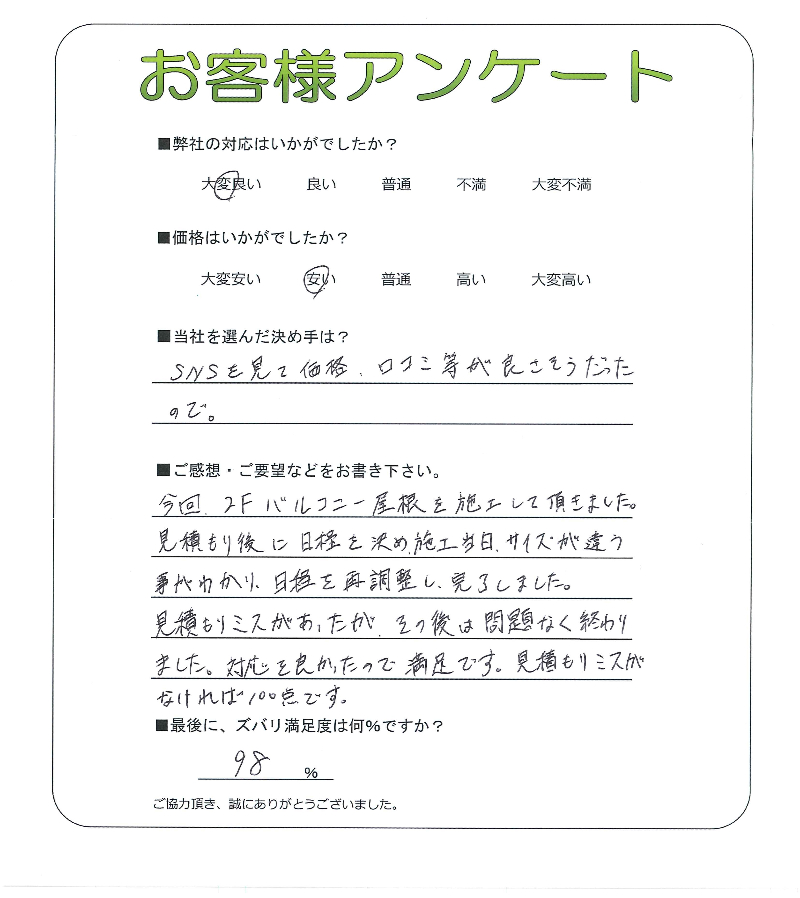 お客様アンケート
■弊社の対応はいかがでしたか？
大変良い 良い 普通 不満 大変不満
■価格はいかがでしたか？
大変安い 安い 普通 高い 大変高い
■当社を選んだ決め手は？
SNSを見て価格、口コミ等が良さそうだった
ので。
■ご感想・ご要望などをお書き下さい。
今回、2Fバルコニー屋根を施工して頂きました。
見積もり後に日程を決め、施工当日、サイズが違う
事がわかり、日程を再調整し、完了しました。
見積もりミスがあったが、その後は問題なく終わり
ました。対応も良かったので満足です。見積もりミスが
なければ100点です。
■最後に、ズバリ満足度は何%ですか？
98 %
ご協力頂き、誠にありがとうございました。